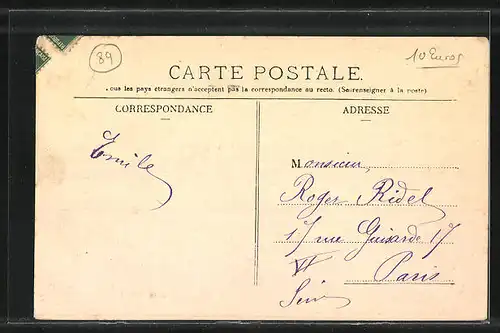 89
10 Euros
CARTE POSTALE.
Tous les pays étrangers n'acceptent pas la correspondance au recto. (Se renseigner à la poste)
CORRESPONDANCE
ADRESSE
Emile
Monsieur,
Roger Ridel
17 rue Guisarde 17
VI
Paris
Seine